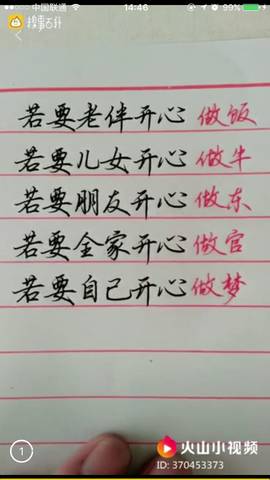 中国联通
14:46
99%
搜事百科
若要老伴开心 做饭
若要儿女开心 做牛
若要朋友开心 做东
若要全家开心 做官
若要自己开心 做梦
1
火山小视频
ID: 370453373